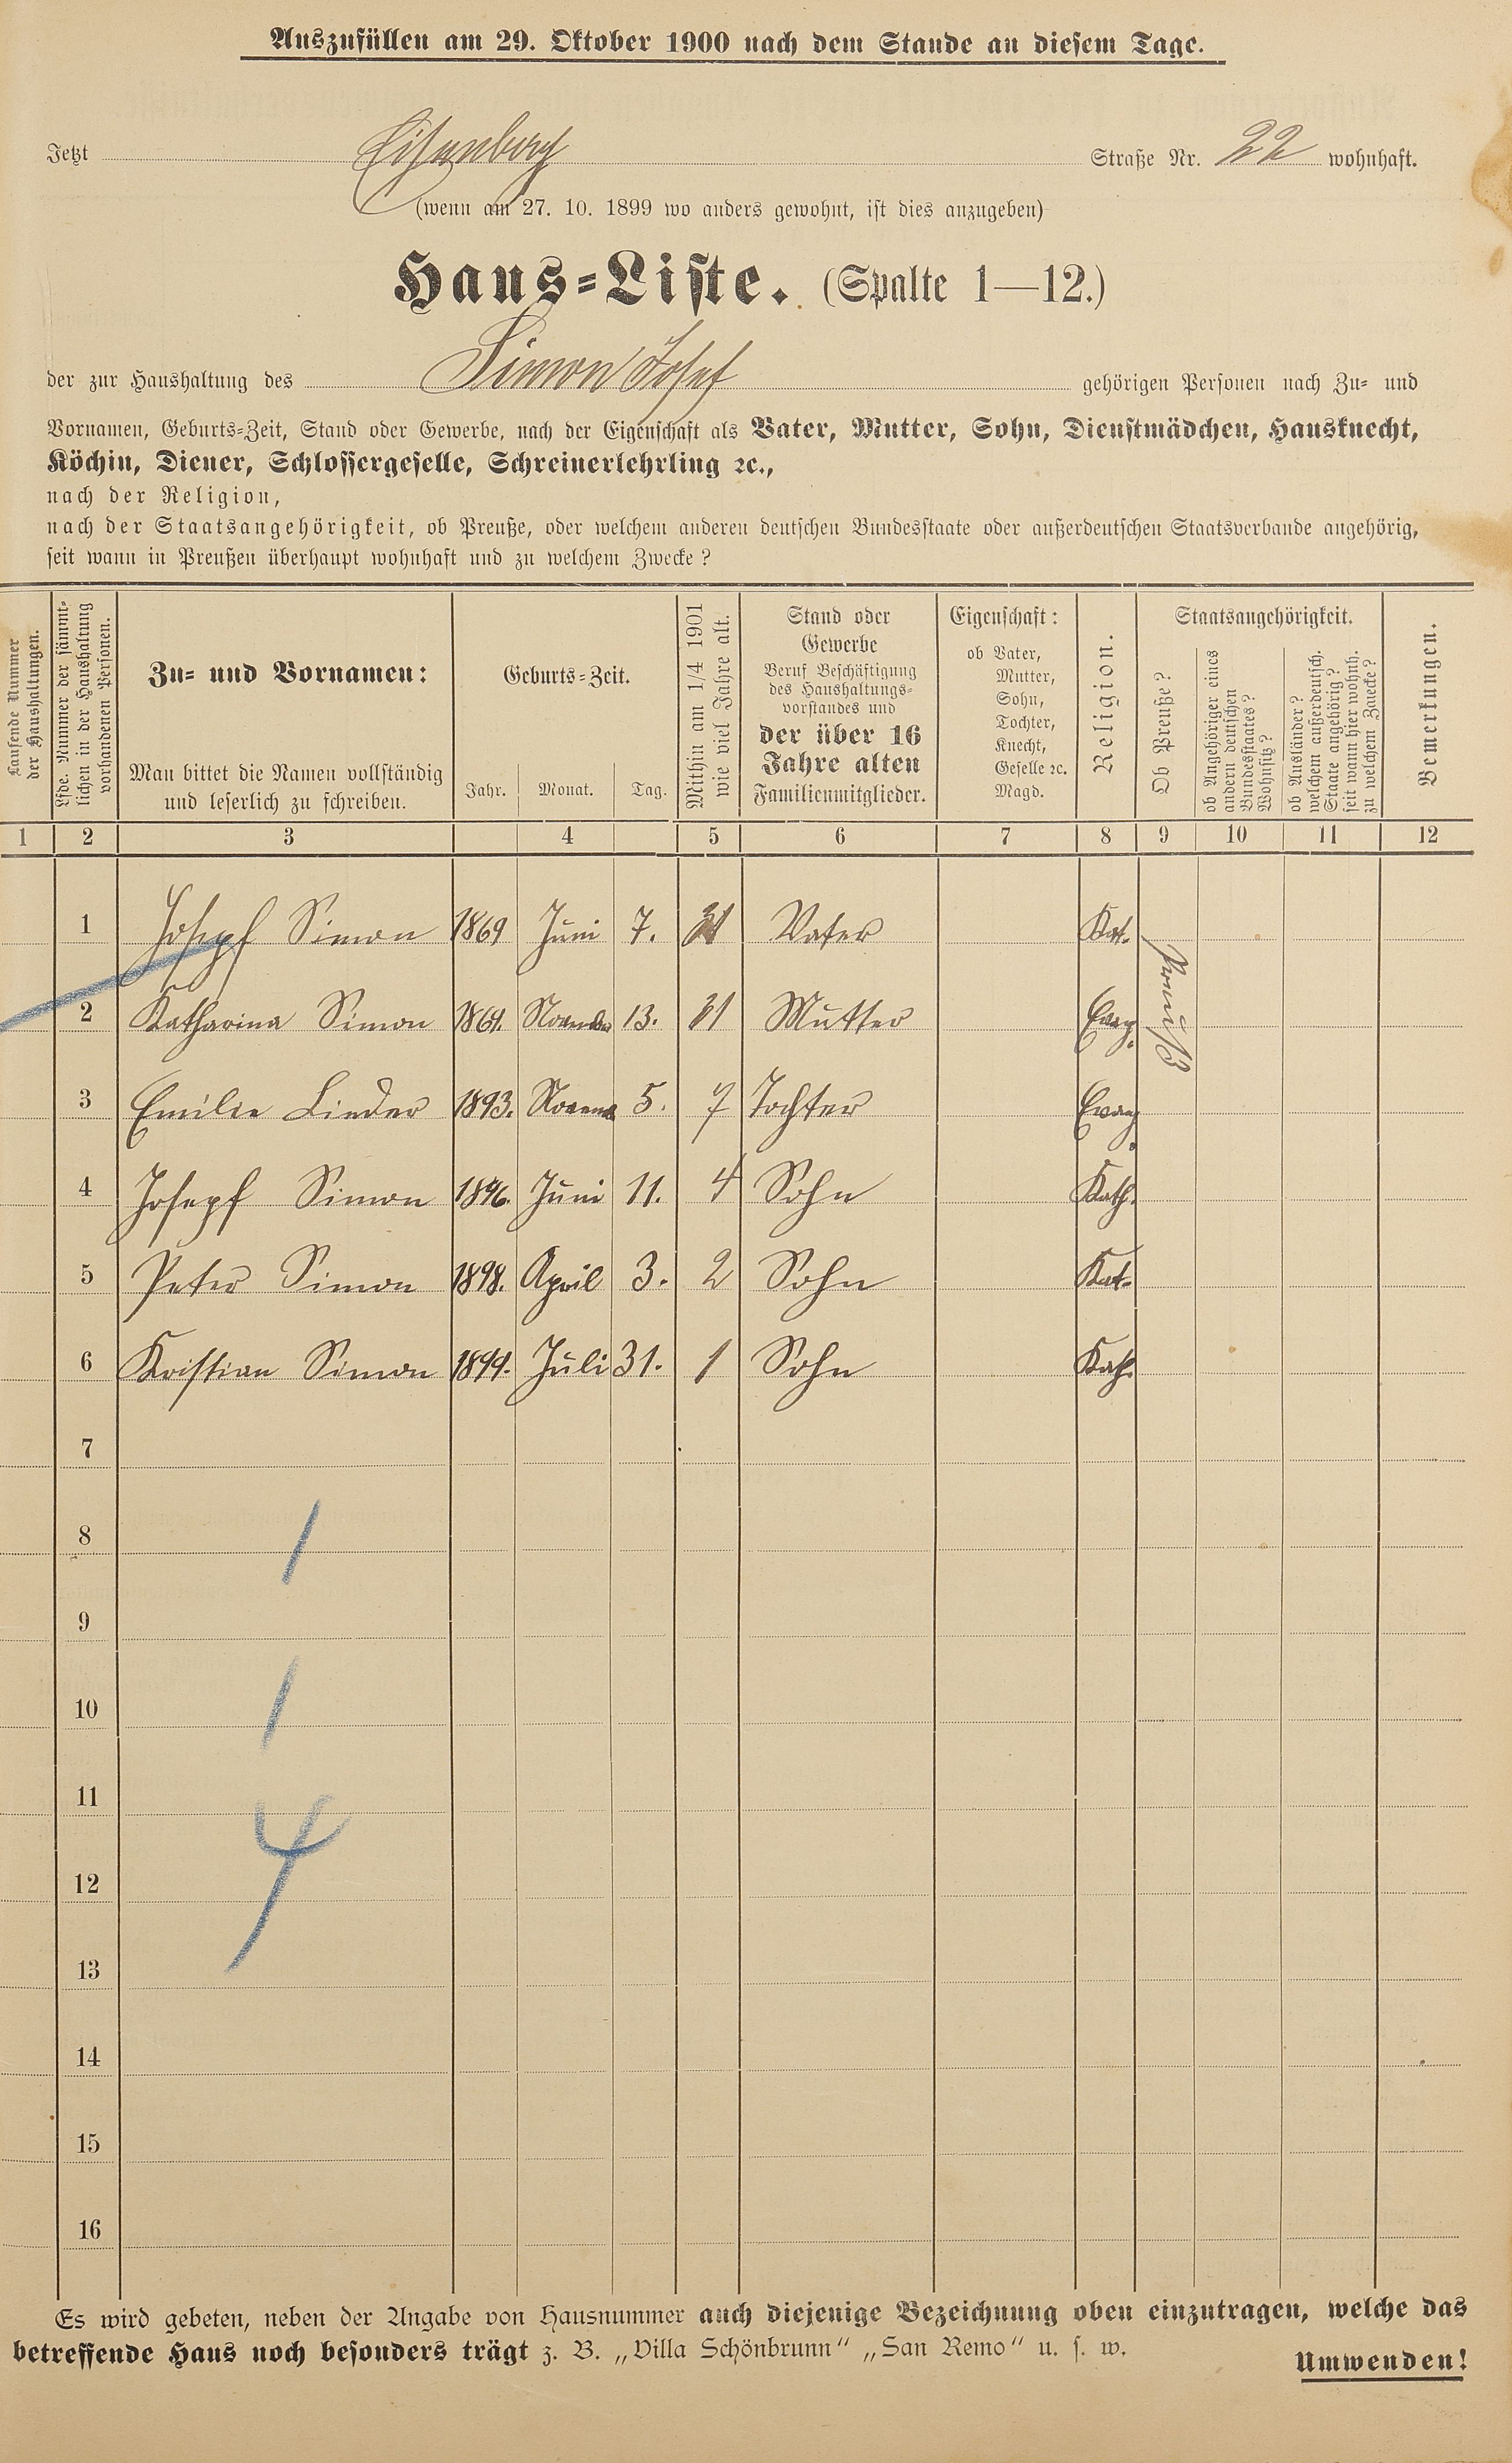 Auszufüllen am 29. Oktober 1900 nach dem Stande an diesem Tage.
Jetzt Eisenberg Straße Nr. 22 wohnhaft.
(wenn am 27. 10. 1899 wo anders gewohnt, ist dies anzugeben)
Haus-Liste. (Spalte 1—12.)
der zur Haushaltung des Simon Josef gehörigen Personen nach Zu- und
Vornamen, Geburts-Zeit, Stand oder Gewerbe, nach der Eigenschaft als Vater, Mutter, Sohn, Dienstmädchen, Hausknecht,
Köchin, Diener, Schlossergeselle, Schreinerlehrling ꝛc.,
nach der Religion,
nach der Staatsangehörigkeit, ob Preuße, oder welchem anderen deutschen Bundesstaate oder außerdeutschen Staatsverbande angehörig,
seit wann in Preußen überhaupt wohnhaft und zu welchem Zwecke?
Laufende Nummer
der Haushaltungen.
Lfde. Nummer der sämmt-
lichen in der Haushaltung
vorhandenen Personen.
Zu- und Vornamen:
Man bittet die Namen vollständig
und leserlich zu schreiben.
Geburts-Zeit.
Jahr. Monat. Tag.
Mithin am 1/4 1901
wie viel Jahre alt.
Stand oder
Gewerbe
Beruf Beschäftigung
des Haushaltungs-
vorstandes und
der über 16
Jahre alten
Familienmitglieder.
Eigenschaft:
ob Vater,
Mutter,
Sohn,
Tochter,
Knecht,
Geselle ꝛc.
Magd.
Religion.
Staatsangehörigkeit.
Ob Preuße?
ob Angehöriger eines
andern deutschen
Bundesstaates?
Wohnsitz?
ob Ausländer?
welchem außerdeutsch.
Staate angehörig?
seit wann hier wohnh.
zu welchem Zwecke?
Bemerkungen.
1 2 3 4 5 6 7 8 9 10 11 12
1 Josepf Simon 1869 Juni 7. 31 Vater Kat. Preuß
2 Katharina Simon 1869. November 13. 31 Mutter Evang.
3 Emilie Linder 1893. Novemb 5. 7 Tochter Evang.
4 Josepf Simon 1896. Juni 11. 4 Sohn Kath.
5 Peter Simon 1898. April 3. 2 Sohn Kat.
6 Kristian Simon 1899. Juli 31. 1 Sohn Kath.
7
8 1
9
10 1
11
12 4
13
14
15
16
Es wird gebeten, neben der Angabe von Hausnummer auch diejenige Bezeichnung oben einzutragen, welche das
betreffende Haus noch besonders trägt z. B. „Villa Schönbrunn“ „San Remo“ u. s. w.
Umwenden!